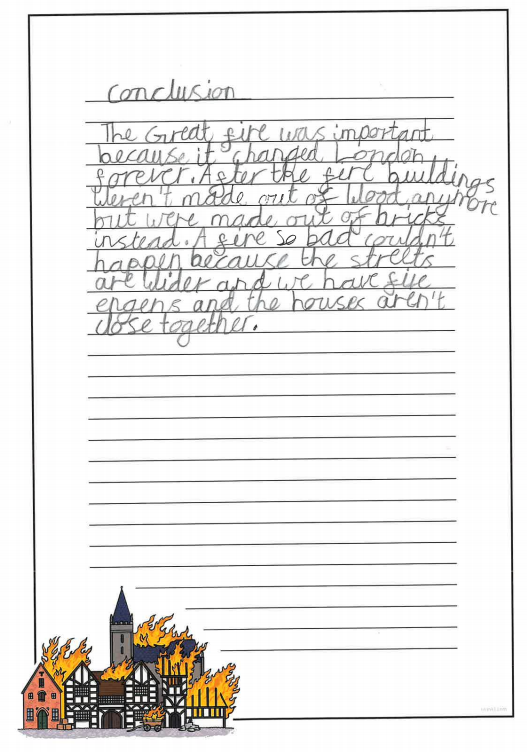 Conclusion
The Great fire was important
because it changed London
forever. After the fire buildings
weren't made out of wood anymore
but were made out of bricks
instead. A fire so bad couldn't
happen because the streets
are wider and we have fire
engens and the houses aren't
close together.